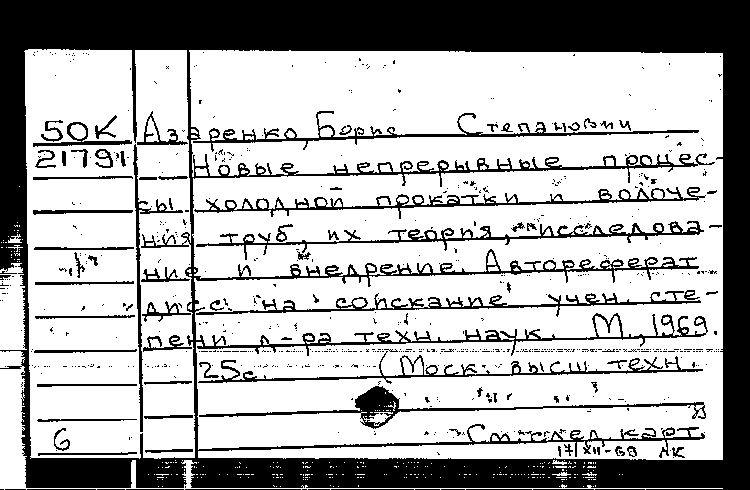 50К Азаренко, Борис Степанович
21791 Новые непрерывные процес-
сы холодной прокатки и волоче-
ния труб, их теория, исследова-
ние и внедрение. Автореферат
дисс. на соискание учен. сте-
пени д-ра техн. наук. М., 1969.
25с. (Моск. высш. техн.
6 См. след. карт.
17/XII-69 АК